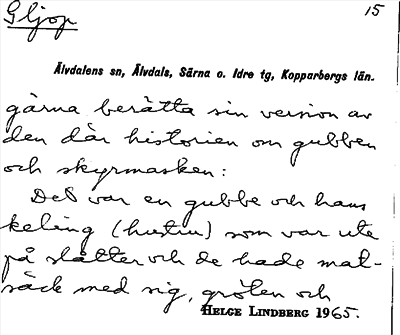 Gljop
15
Älvdalens sn, Älvdals, Särna o. Idre tg, Kopparbergs län.
gärna berätta sin version av
den där historien om gubben
och skyrmasken:
Det var en gubbe och hans
keling (hustru) som var ute
på slåtter och de hade mat-
säck med sig, gröten och
HELGE LINDBERG 1965.